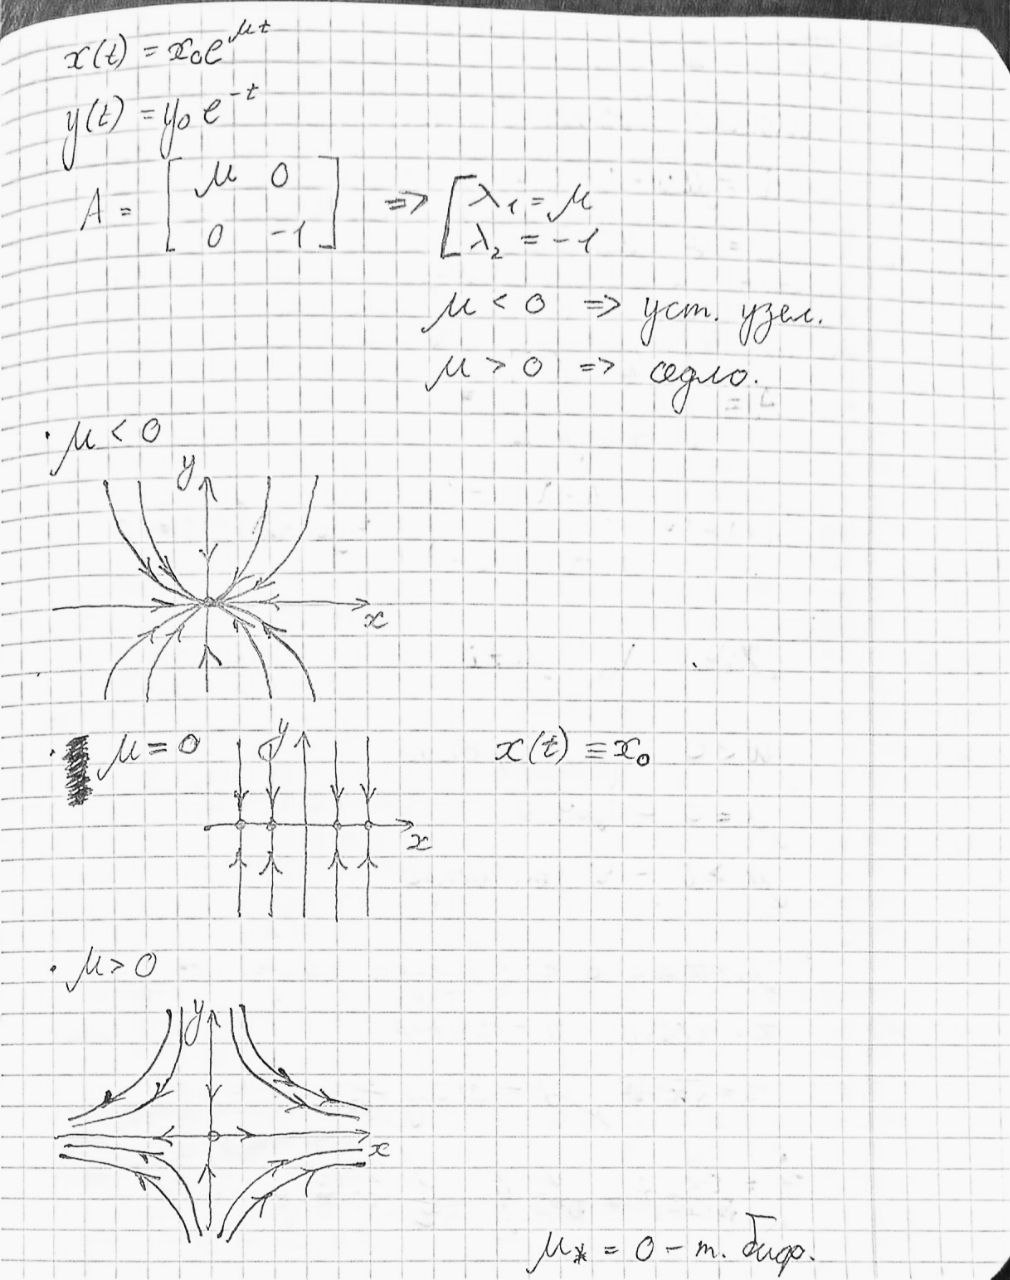 x(t) = x₀e^{μt}
y(t) = y₀ e^{-t}
A = [ μ 0 ; 0 -1 ] => [ λ₁ = μ
λ₂ = -1
μ < 0 => уст. узел.
μ > 0 => седло.
· μ < 0
y
x
· μ = 0 y x(t) ≡ x₀
x
· μ > 0
y
x
μ* = 0 - т. бифр.